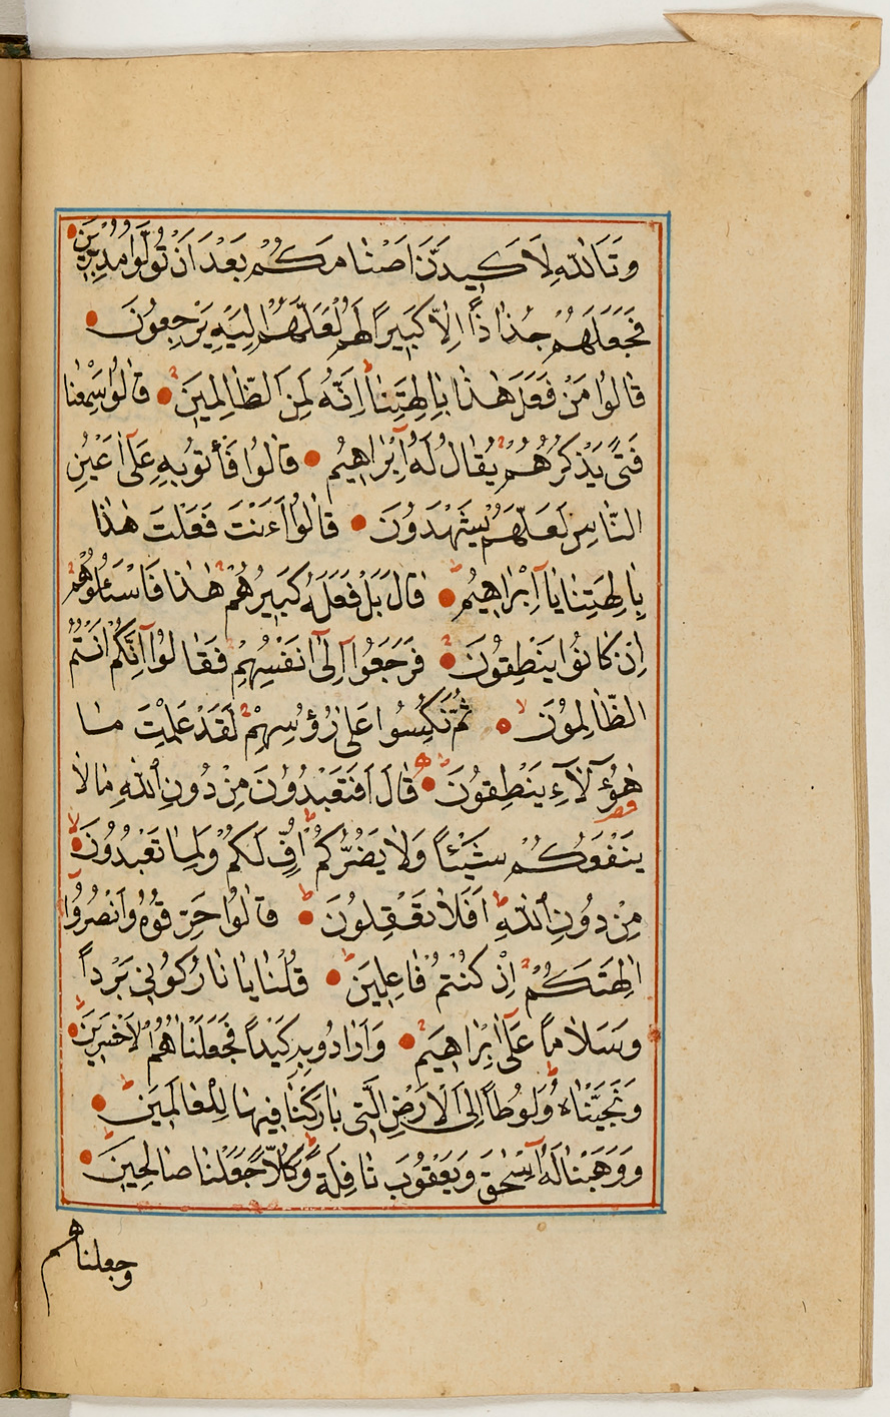 وَتَاللّٰهِ لَاَكٖيدَنَّ اَصْنَامَكُمْ بَعْدَ اَنْ تُوَلُّوا مُدْبِرٖينَ
فَجَعَلَهُمْ جُذَاذاً اِلَّا كَبٖيراً لَهُمْ لَعَلَّهُمْ اِلَيْهِ يَرْجِعُونَ
قَالُوا مَنْ فَعَلَ هٰذَا بِاٰلِهَتِنَا اِنَّهُ لَمِنَ الظَّالِمٖينَ قَالُوا سَمِعْنَا
فَتًى يَذْكُرُهُمْ يُقَالُ لَهُ اِبْرَاهٖيمُ قَالُوا فَأْتُوا بِهٖ عَلٰى اَعْيُنِ
النَّاسِ لَعَلَّهُمْ يَشْهَدُونَ قَالُوا ءَاَنْتَ فَعَلْتَ هٰذَا
بِاٰلِهَتِنَا يَا اِبْرَاهٖيمُ قَالَ بَلْ فَعَلَهُ كَبٖيرُهُمْ هٰذَا فَاسْـَٔلُوهُمْ
اِنْ كَانُوا يَنْطِقُونَ فَرَجَعُوا اِلٰى اَنْفُسِهِمْ فَقَالُوا اِنَّكُمْ اَنْتُمُ
الظَّالِمُونَ ثُمَّ نُكِسُوا عَلٰى رُؤُسِهِمْ لَقَدْ عَلِمْتَ مَا
هٰؤُلَاءِ يَنْطِقُونَ قَالَ اَفَتَعْبُدُونَ مِنْ دُونِ اللّٰهِ مَا لَا
يَنْفَعُكُمْ شَيْـًٔا وَلَا يَضُرُّكُمْ اُفٍّ لَكُمْ وَلِمَا تَعْبُدُونَ
مِنْ دُونِ اللّٰهِ اَفَلَا تَعْقِلُونَ قَالُوا حَرِّقُوهُ وَانْصُرُوا
اٰلِهَتَكُمْ اِنْ كُنْتُمْ فَاعِلٖينَ قُلْنَا يَا نَارُ كُونٖى بَرْداً
وَسَلَاماً عَلٰى اِبْرَاهٖيمَ وَاَرَادُوا بِهٖ كَيْداً فَجَعَلْنَاهُمُ الْاَخْسَرٖينَ
وَنَجَّيْنَاهُ وَلُوطاً اِلَى الْاَرْضِ الَّتٖى بَارَكْنَا فٖيهَا لِلْعَالَمٖينَ
وَوَهَبْنَا لَهُ اِسْحٰقَ وَيَعْقُوبَ نَافِلَةً وَكُلّاً جَعَلْنَا صَالِحٖينَ
وجعلناهم